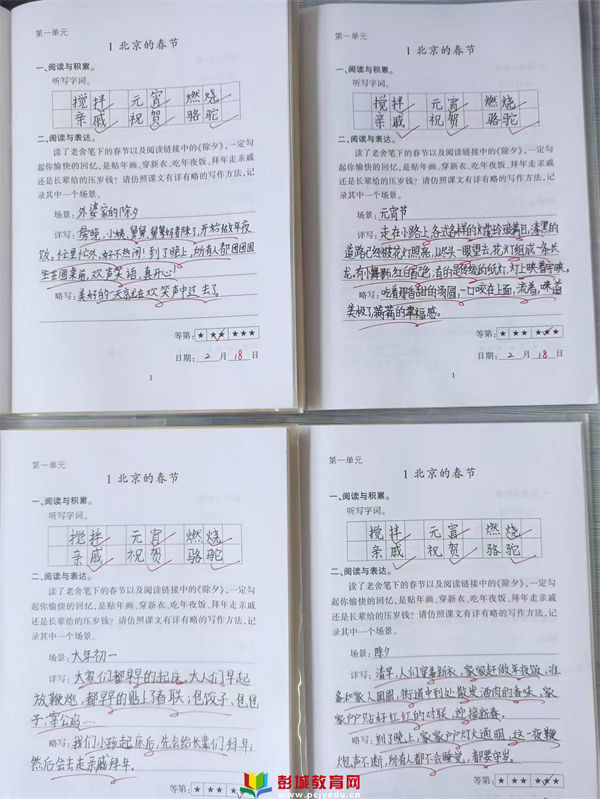 第一单元
1 北京的春节
一、阅读与积累。
听写字词。
搅拌 元宵 燃烧
亲戚 祝贺 骆驼
二、阅读与表达。
读了老舍笔下的春节以及阅读链接中的《除夕》,一定勾
起你愉快的回忆,是贴年画、穿新衣、吃年夜饭、拜年走亲戚
还是长辈给的压岁钱?请仿照课文有详有略的写作方法,记
录其中一个场景。
场景:外婆家的除夕
详写:傍晚,小姨,舅舅,舅舅好着陈了,开始做年夜
饭。忙里忙外,好不热闹!到了晚上,所有人都团团圆圆
坐在圆桌前,欢声笑语,真开心!
略写:美好的一天就在欢笑声中过去了。
等第:★ ★★ ★★★
日期:2月18日
1
第一单元
1 北京的春节
一、阅读与积累。
听写字词。
搅拌 元宵 燃烧
亲戚 祝贺 骆驼
二、阅读与表达。
读了老舍笔下的春节以及阅读链接中的《除夕》,一定勾
起你愉快的回忆,是贴年画、穿新衣、吃年夜饭、拜年走亲戚
还是长辈给的压岁钱?请仿照课文有详有略的写作方法,记
录其中一个场景。
场景:元宵节
详写:走在小路上,各式各样的灯笼琳琅满目,漆黑的
道路已经被花灯照亮,从尽头一眼望去,花灯组成一条长
龙,有小舞狮,红白配色,有的是传统的纸灯,灯上映着字映。
略写:吃着那香甜的汤圆,一口咬在上面,流着,味道
美极了,满满的幸福感。
等第:★ ★★ ★★★
日期:2月18日
1
第一单元
1 北京的春节
一、阅读与积累。
听写字词。
搅拌 元宵 燃烧
亲戚 祝贺 骆驼
二、阅读与表达。
读了老舍笔下的春节以及阅读链接中的《除夕》,一定勾
起你愉快的回忆,是贴年画、穿新衣、吃年夜饭、拜年走亲戚
还是长辈给的压岁钱?请仿照课文有详有略的写作方法,记
录其中一个场景。
场景:大年初一
详写:大家们都早早的起床,大人们早起
放鞭炮,都早早的贴上了春联;包饺子、包包
子、宰公鸡……
略写:我们小孩起床后,先会给长辈们拜年,
然后会去走亲戚拜年。
等第:★ ★★ ★★★
第一单元
1 北京的春节
一、阅读与积累。
听写字词。
搅拌 元宵 燃烧
亲戚 祝贺 骆驼
二、阅读与表达。
读了老舍笔下的春节以及阅读链接中的《除夕》,一定勾
起你愉快的回忆,是贴年画、穿新衣、吃年夜饭、拜年走亲戚
还是长辈给的压岁钱?请仿照课文有详有略的写作方法,记
录其中一个场景。
场景:除夕
详写:清早,人们穿着新衣,家家赶做年夜饭,准
备和家人团圆,街道中到处散发酒肉的香味,家
家户户贴好红红的对联,迎接新春。
略写:到了晚上,家家户户灯火通明,这一夜鞭
炮声不断,所有人都不会睡觉,都要守岁。
等第:★
彭城教育网
www.pcjyedu.cn